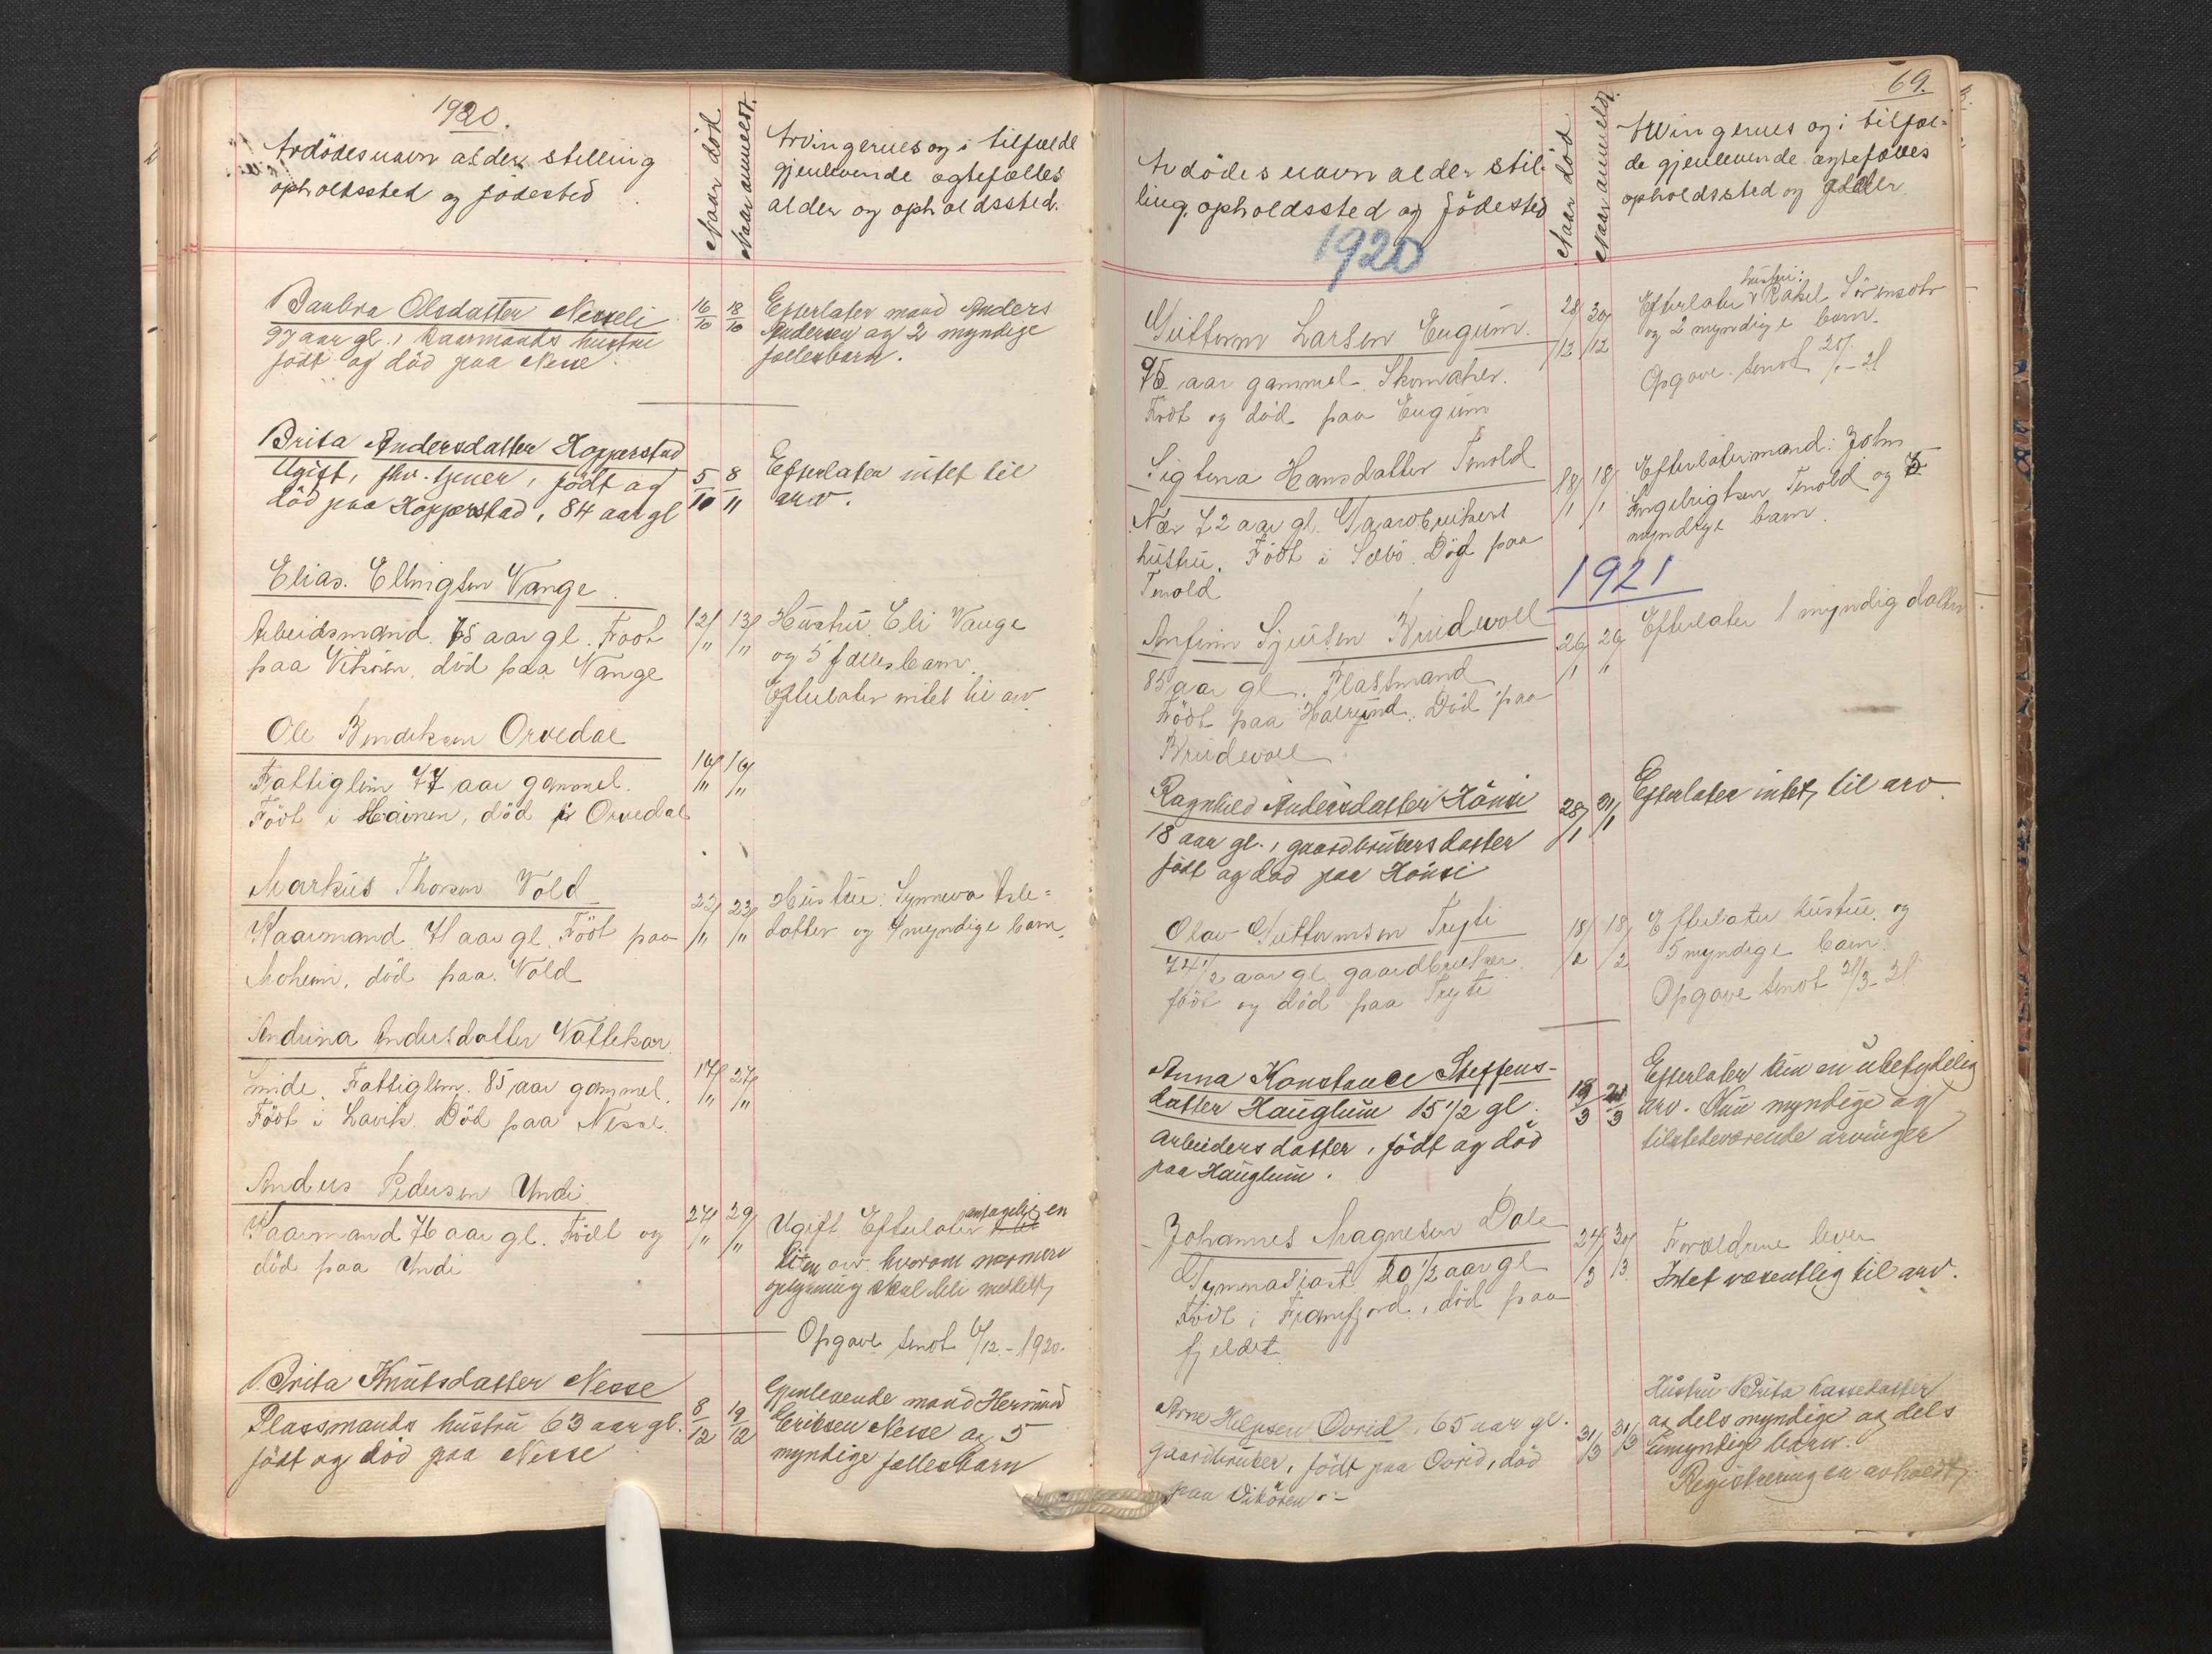 1920.
Avdødes navn alder stilling
opholdssted og fødested
Naar død.
Naar anmeldt.
Arvingernes og i tilfælde
gjenlevende ægtefælles
alder og opholdssted.
Olsdatter Nesseli
97 aar gl., kaarmands hustru
født og død paa Nesse
16/10
18/10
Efterlater mand Anders
Andersen og 2 myndige
fællesbarn.
Brita Andersdatter Hopperstad
Ugift, fhv. tjener, født og
død paa Hopperstad, 84 aar gl
5/10
8/11
Efterlater intet til
arv.
Elias Ellingsen Vange
Arbeidsmand. 78 aar gl. Født
paa Vikøren, død paa Vange
12/11
13/11
Hustru Eli Vange
og 5 fællesbarn.
Efterlater intet til arv.
Ole Bendiksen Orvedal
Fattiglem 77 aar gammel.
Født i død i Orvedal
16/11
16/11
Markus Thorsen Vold
Kaarmand 71 aar gl. Født paa
Moheim, død paa Vold
22/11
23/11
Hustru: Synneva Asle=
datter og 4 myndige barn.
Andersdatter Nattekar
Fattiglem. 85 aar gammel.
Født i Lavik. Død paa Nesse.
17/11
27/11
Anders Pedersen Undi
Kaarmand 76 aar gl. Født og
død paa Undi
27/11
29/11
Ugift Efterlater antagelig en
liten arv hvorom nærmere
oplysning skal bli meddelt
Opgave sendt 6/12 - 1920.
Brita Knutsdatter Nesse
Plassmands hustru 63 aar gl.
født og død paa Nesse
8/12
19/12
Gjenlevende mand Hermund
Eriksen Nesse og 5
myndige fællesbarn
69.
Avdødes navn alder stil-
ling, opholdssted og fødested
Naar død
Naar anmeldt.
Arvingernes og i tilfæl=
de gjenlevende ægtefælles
opholdssted og alder.
1920
Guttorm Larsen Engum.
75 aar gammel. Skomaker.
Født og død paa Engum
28/12
30/12
hustru:
Efterlater Rakel Sørensdtr
og 2 myndige barn.
Opgave sendt 20/1 - 21
Sigtena Hansdatter Tenold
Nær 72 aar gl. Gaardbrukers
hustru. Født i Sæbø. Død paa
Tenold
18/1
18/1
Efterlater mand: John
Ingebrigtsen Tenold og 5
myndige barn.
1921
Anfinn Sjursen Brudevoll
85 aar gl. Plassmand
Født paa Død paa
Brudevoll
26/1
29/1
Efterlater 1 myndig datter
Ragnhild Andersdatter Hønsi
18 aar gl., gaardbrukers datter
født og død paa Hønsi
28/1
31/1
Efterlater intet til arv.
Olav Guttormsen Tryti
74 1/2 aar gl. gaardbruker
født og død paa Tryti
18/2
18/2
Efterlater hustru og
5 myndige barn.
Opgave sendt 21/3 - 21
Anna Konstance Steffens-
datter Hauglum 15 1/2 gl.
arbeiders datter, født og død
paa Hauglum.
19/3
21/3
Efterlater kun en ubetydelig
arv. Kun myndige og
tilstedeværende arvinger
Johannes Magnesen Dale
Gymnasiast. 20 1/2 aar gl
Født i Framfjord, død paa
fjeldet
24/3
30/3
Forældrene lever
Intet væsentlig til arv.
Arne Helgesen Ovrid, 65 aar gl.
gaardbruker, født paa Ovrid, død
paa Vikøren.-
31/3
31/3
Hustru Brita Lassedatter
og dels myndige og dels
umyndige barn.
Registrering er avholdt.